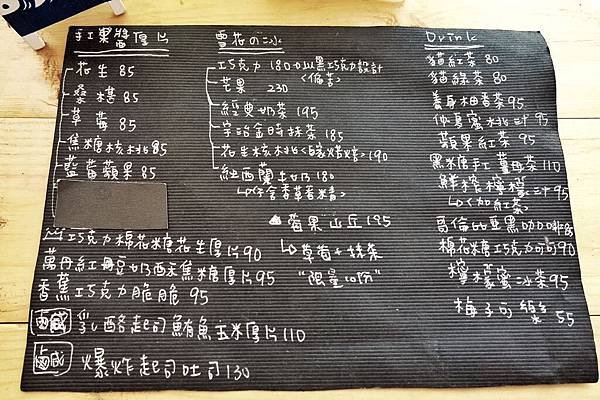 手工果醬厚片
花生 85
桑椹 85
草莓 85
焦糖核桃 85
藍莓蘋果 85
巧克力棉花糖花生厚片 90
萬丹紅豆奶酥焦糖厚片 95
香蕉巧克力脆脆 95
鹹 乳酪起司鮪魚玉米厚片 110
鹹 爆炸起司吐司 130
雪花の冰
巧克力 180
<偏苦>
芒果 230
經典奶茶 195
宇治金時抹茶 185
花生核桃 190
紐西蘭牛奶 180
莓果山丘 195
↳草莓+抹茶
"限量10份"
Drink
貓紅茶 80
貓綠茶 80
養身柚香茶 95
蘋果紅茶 95
黑糖手工薑母茶 110
鮮榨檸檬汁 95
↳<加紅茶>
哥倫比亞黑咖啡 85
棉花糖巧克力可可 90
檸檬蜜冰茶 95
梅子可樂 55